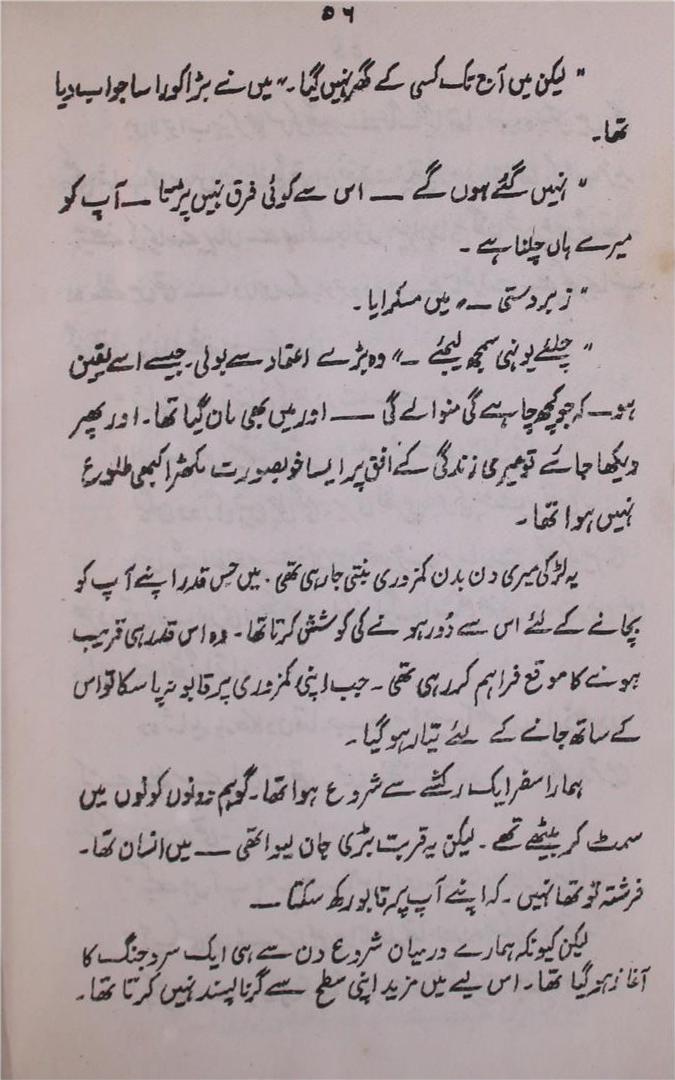 ۵۶
" لیکن میں آج تک کسی کے گھر نہیں گیا۔" میں نے بڑا کورا سا جواب دیا
تھا۔
" نہیں گئے ہوں گے — اس سے کوئی فرق نہیں پڑتا — آپ کو
میرے ہاں چلنا ہے۔
" زبردستی —" میں مسکرایا۔
" چلئے یونہی سمجھ لیجئے —" وہ بڑے اعتماد سے بولی۔ جیسے اسے یقین
ہو — کہ جو کچھ چاہے گی منوا لے گی — اور میں بھی مان گیا تھا۔ اور پھر
دیکھا جائے تو میری زندگی کے افق پر ایسا خوبصورت مکھڑا کبھی طلوع
نہیں ہوا تھا۔
یہ لڑکی میری دن بدن کمزوری بنتی جا رہی تھی۔ میں جس قدر اپنے آپ کو
بچانے کے لئے اس سے دُور ہونے کی کوشش کرتا تھا۔ وہ اس قدر ہی قریب
ہونے کا موقع فراہم کر رہی تھی۔ جب اپنی کمزوری پر قابو نہ پا سکا تو اس
کے ساتھ جانے کے لئے تیار ہو گیا۔
ہمارا سفر ایک رکشے سے شروع ہوا تھا۔ گو ہم دونوں کونوں میں
سمٹ کر بیٹھے تھے۔ لیکن یہ قربت بڑی جان لیوا تھی — میں انسان تھا۔
فرشتہ تو تھا نہیں۔ کہ اپنے آپ پر قابو رکھ سکتا —
لیکن کیونکہ ہمارے درمیان شروع دن سے ہی ایک سرد جنگ کا
آغاز ہو گیا تھا۔ اس لیے میں مزید اپنی سطح سے گرنا پسند نہیں کرتا تھا۔